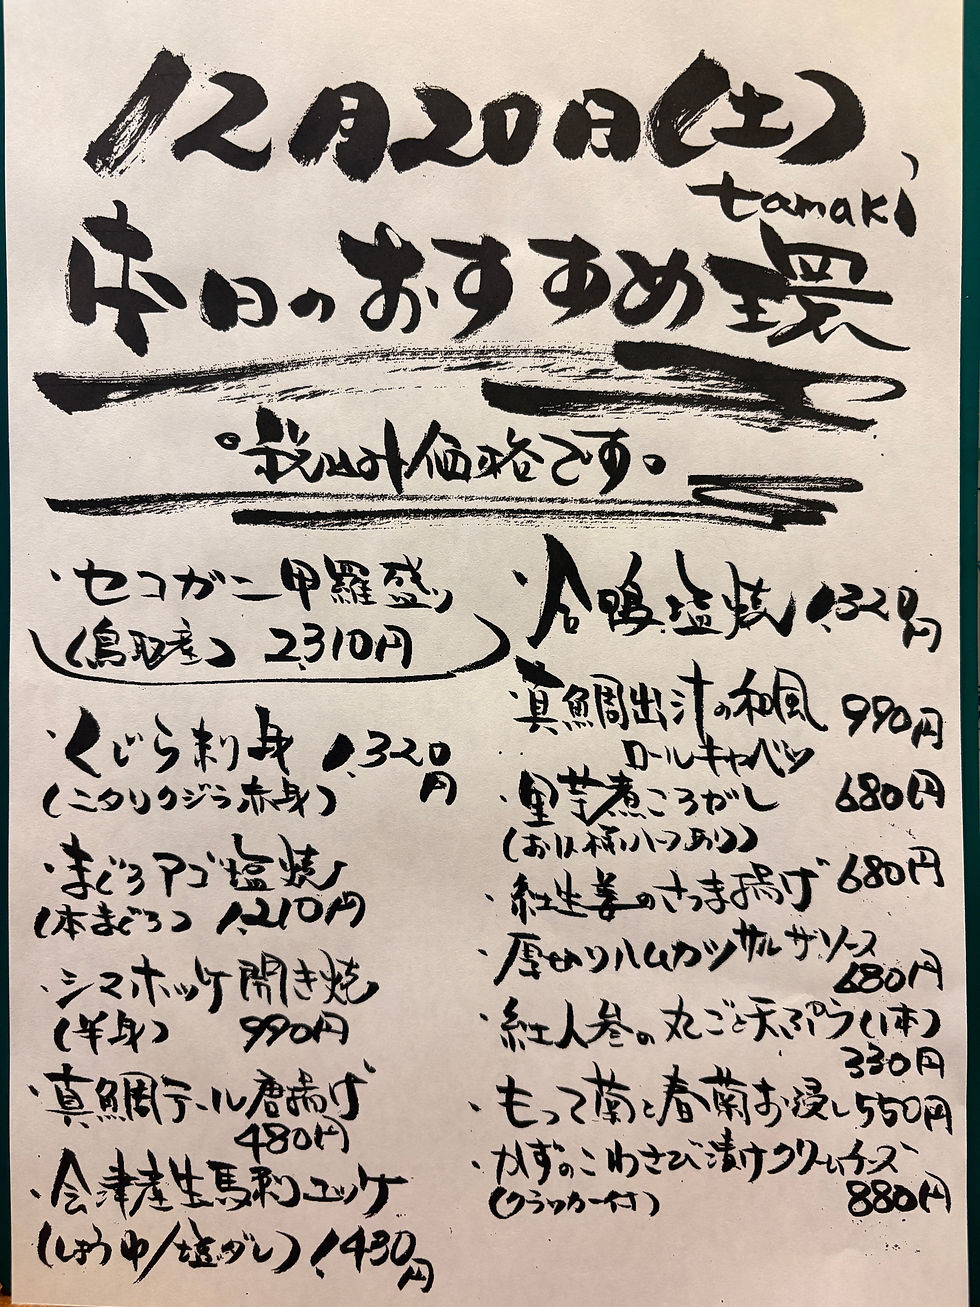 12月20日(土)
tamaki
本日のおすすめ 環
。税込み価格です。
・セコガニ甲羅盛り
(鳥取産) 2,310円
・くじら刺身 1,320円
(ニタリクジラ赤身)
・まぐろアゴ塩焼
(本まぐろ) 1,210円
・シマホッケ開き焼
(半身) 990円
・真鯛テール唐揚げ
480円
・会津産生馬刺ユッケ
(しょうゆ/塩ダレ) 1,430円
・合鴨塩焼 1,320円
・真鯛出汁の和風 990円
ロールキャベツ
・里芋煮ころがし 680円
(お1人様ハーフあり)
・紅生姜のさつま揚げ 680円
・厚切りハムカツサルサソース
680円
・紅人参の丸ごと天ぷら(1本)
330円
・もって菊と春菊お浸し 550円
・かずのこわさび漬けクリームチーズ
(クラッカー付) 880円